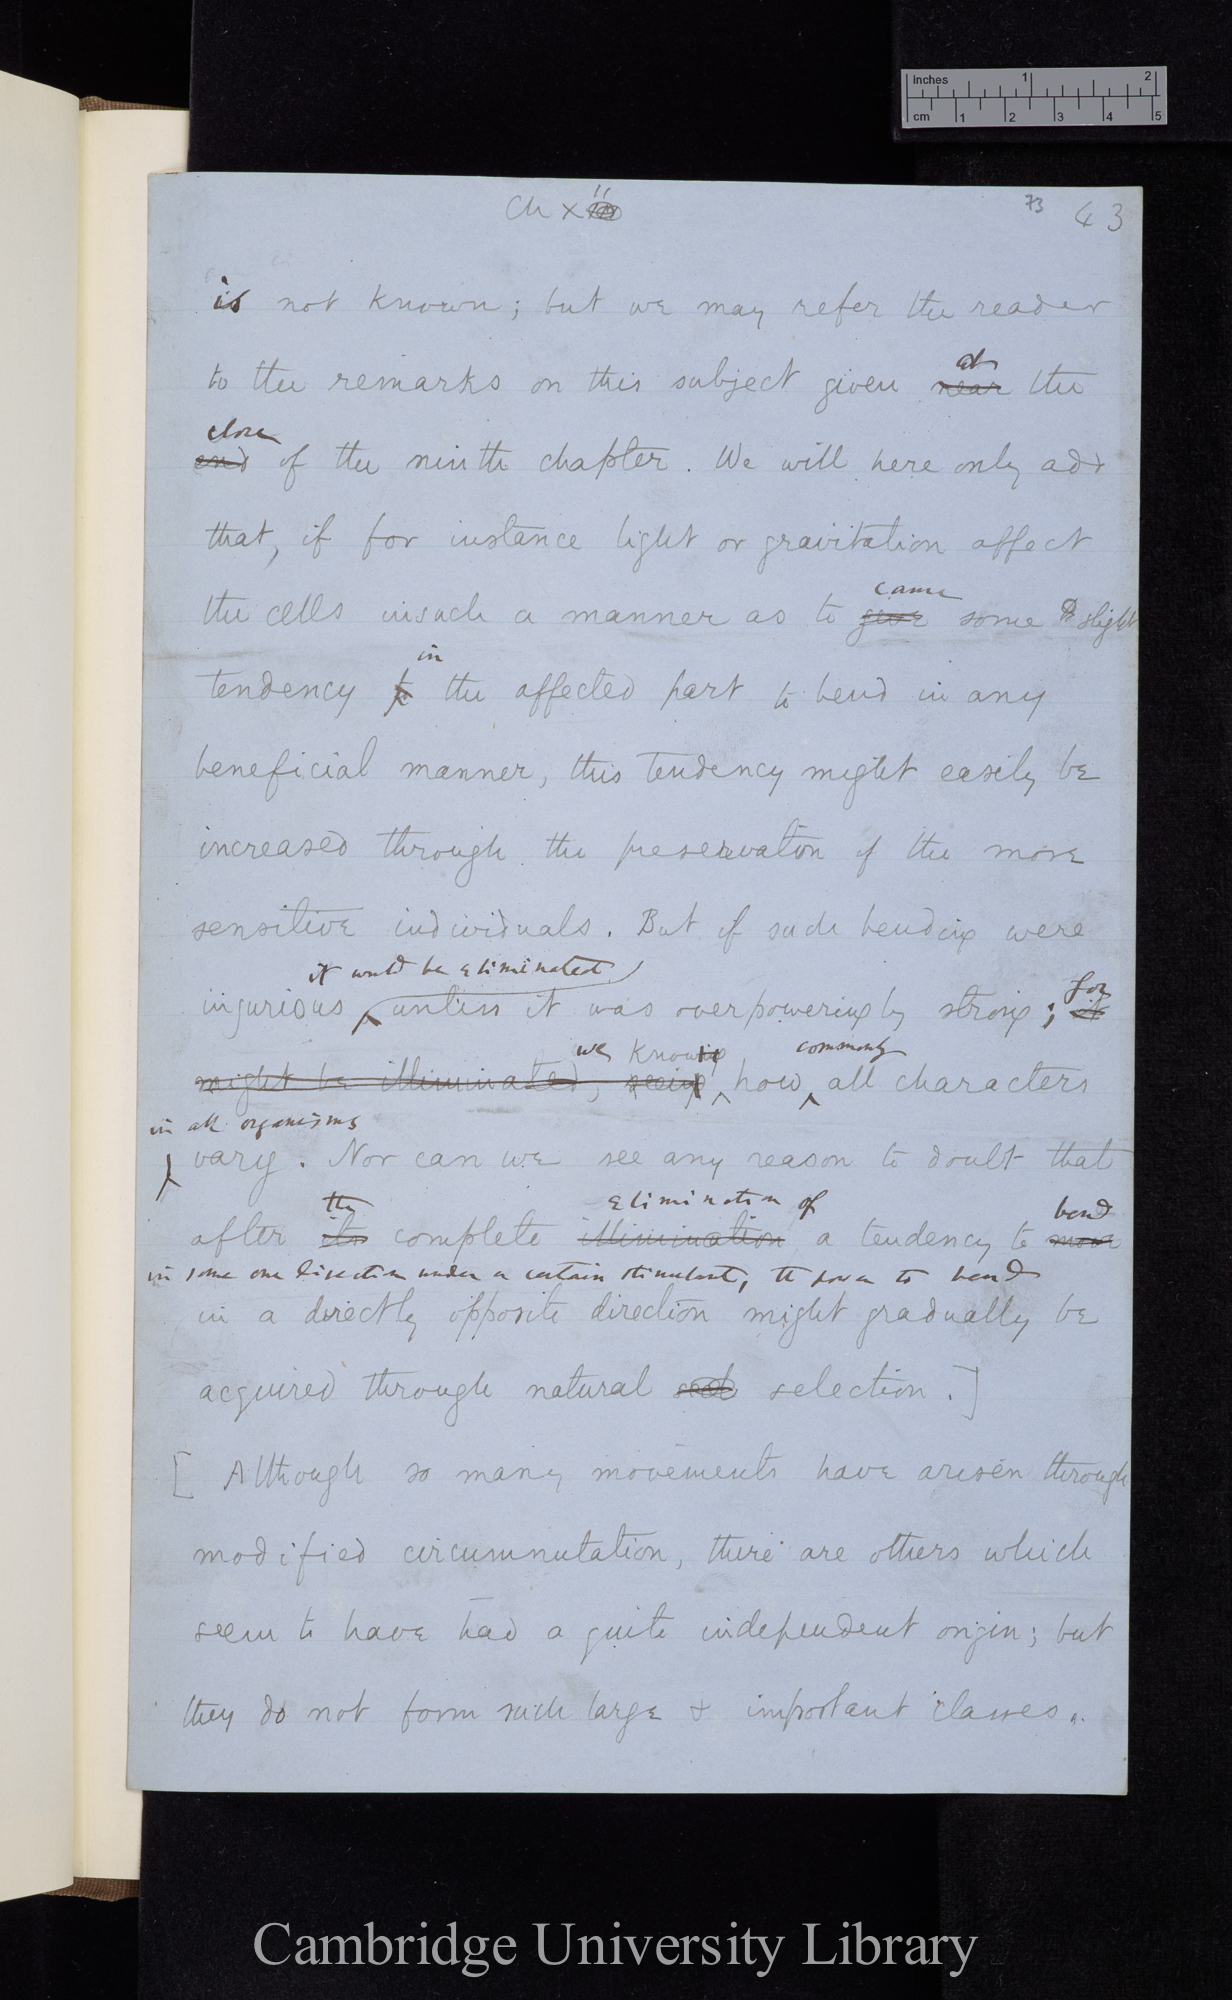 Inches 1 2
cm 1 2 3 4 5
Ch x ii 73 43
is not known; but we may refer the reader
at
to the remarks on this subject given near the
close
end of the ninth chapter. We will here only add
that, if for instance light or gravitation affect
cause
the cells in such a manner as to give some slight
in
tendency to the affected part to bend in any
beneficial manner, this tendency might easily be
increased through the preservation of the more
sensitive individuals. But if such bending were
it would be eliminated
for
injurious unless it was overpoweringly strong; it
we knowing commonly
might be illiminated, seeing, how all characters
in all organisms
vary. Nor can we see any reason to doubt that
the elimination of bend
after its complete illimination a tendency to move
in some one direction under a certain stimulant, the power to bend
in a directly opposite direction might gradually be
acquired through natural sel selection.]
[Although so many movements have arisen through
modified circumnutation, there are others which
seem to have had a quite independent origin; but
they do not form such large & important classes.
Cambridge University Library